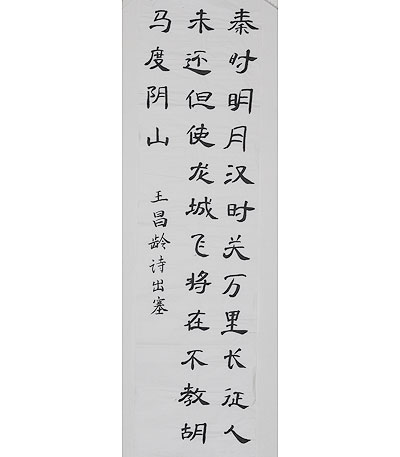 秦时明月汉时关万里长征人
未还但使龙城飞将在不教胡
马度阴山
王昌龄诗出塞